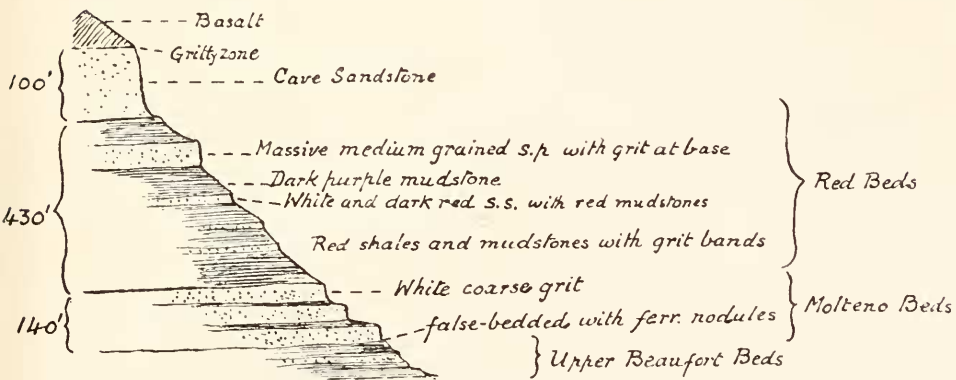 Basalt
Gritty zone
100' Cave Sandstone
Massive medium grained s.p. with grit at base
Dark purple mudstone
White and dark red s.s. with red mudstones
Red Beds
430'
Red shales and mudstones with grit bands
White coarse grit
Molteno Beds
140'
false-bedded with ferr. nodules
Upper Beaufort Beds